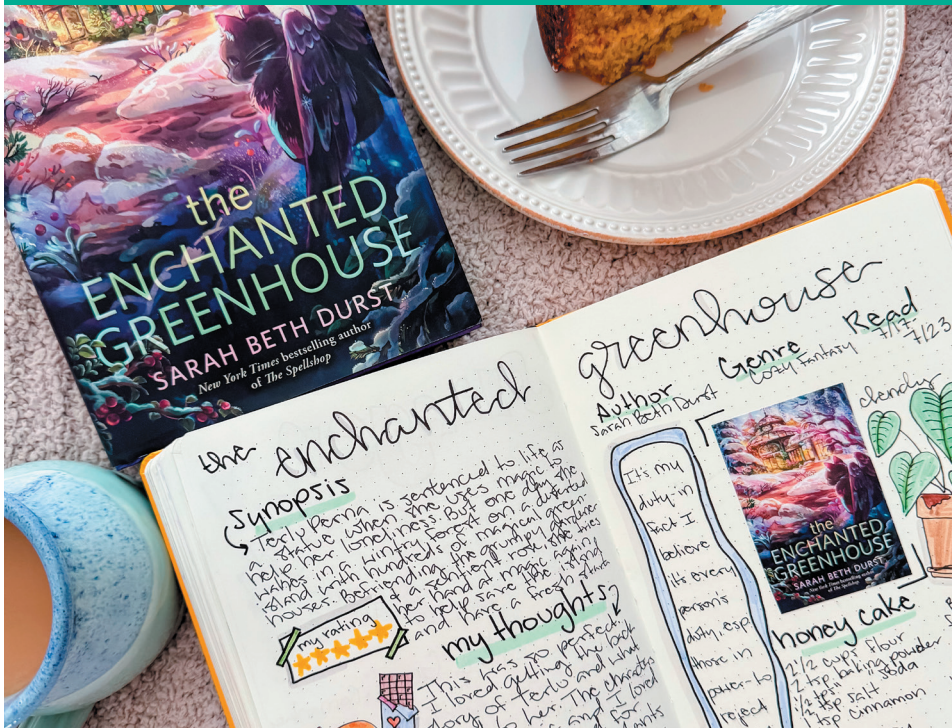 the
ENCHANTED
GREENHOUSE
SARAH BETH DURST
New York Times bestselling author
of The Spellshop
the enchanted
synopsis
Terlu Perna is sentenced to life as
a statue when she uses magic to
help her loneliness. But one day she
wakes in a wintry forest on a deserted
island with hundreds of magical green-
houses. Befriending the grumpy gardener
and a sentient rose, she tries
her hand at magic again
to help save the island
and have a fresh start
my rating
my thoughts
This was so perfect.
I loved getting the back
story of Terlu and what
to her. The characters
and I loved
for
greenhouse
Author
Sarah Beth Durst
Genre
Cozy Fantasy
Read
7/17-
7/23
It's my
duty-in
fact I
believe
it's every
person's
duty, esp.
those in
power-to
reject
the
ENCHANTED
GREENHOUSE
SARAH BETH DURST
honey cake
2 1/2 cups flour
2 tsp baking powder
soda
tsp salt
cinnamon